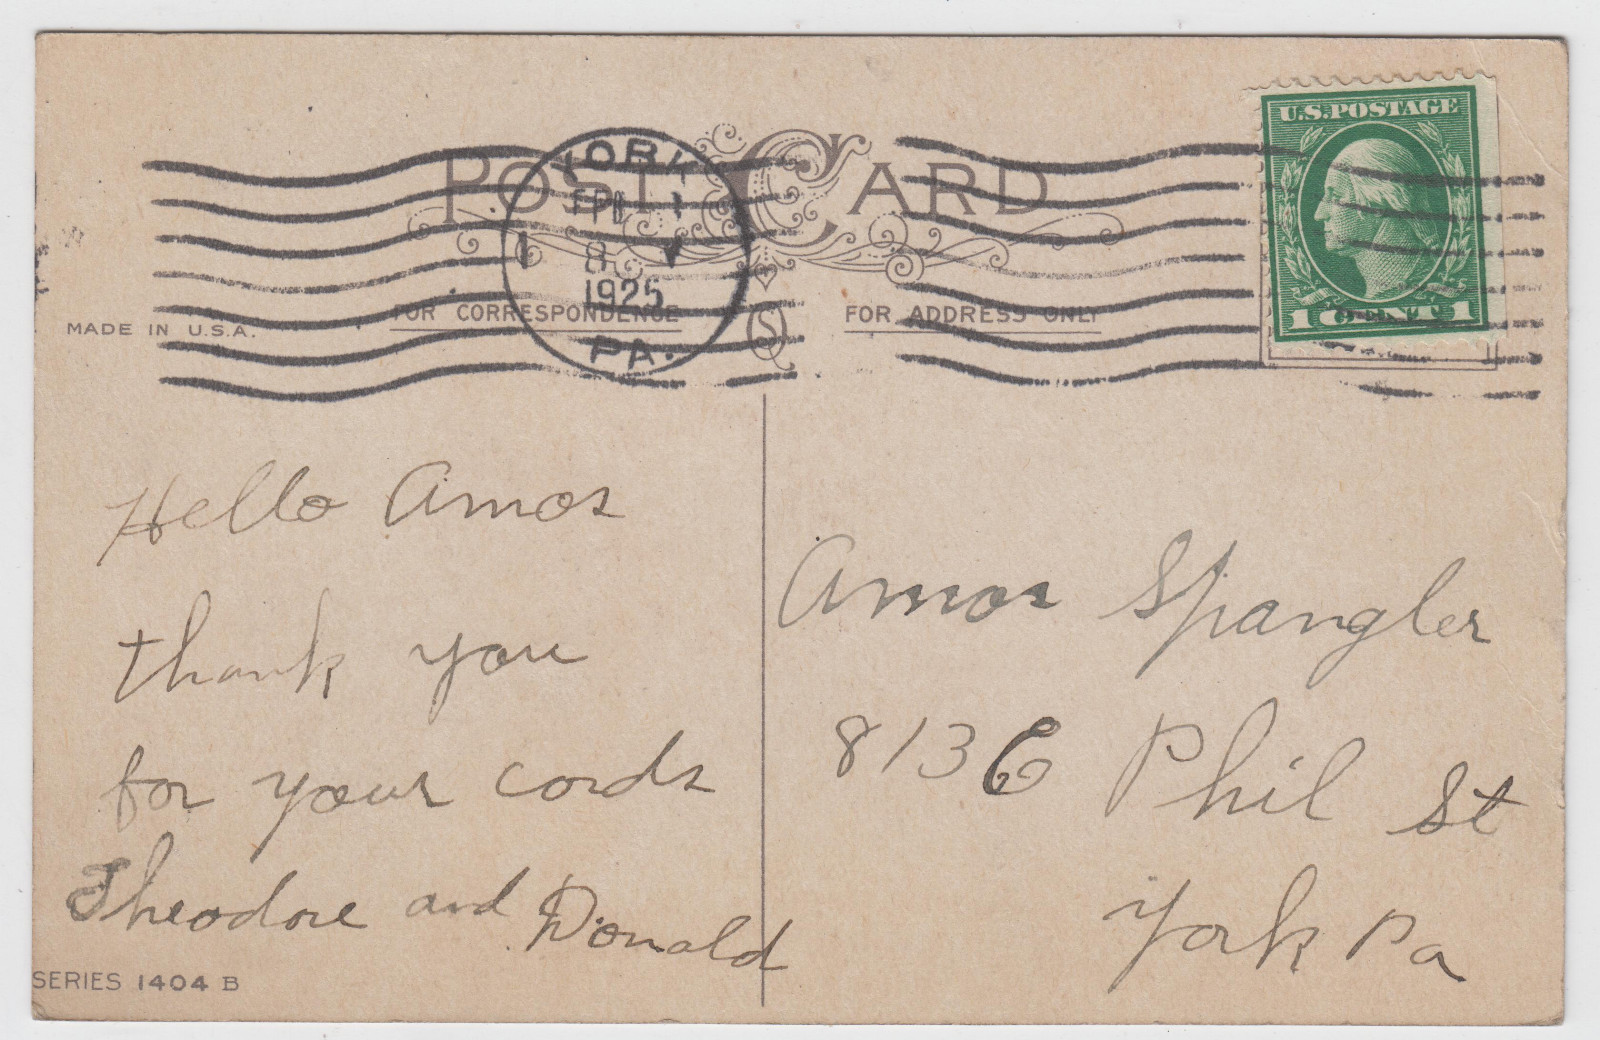 POST CARD
U.S. POSTAGE
1 CENT 1
YORK
1
8
1925
PA.
MADE IN U.S.A.
FOR CORRESPONDENCE
FOR ADDRESS ONLY
S
Hello Amos
thank you
for your cords
Theodore and Donald
SERIES 1404 B
Amos Spangler
813 E Phil St
York Pa